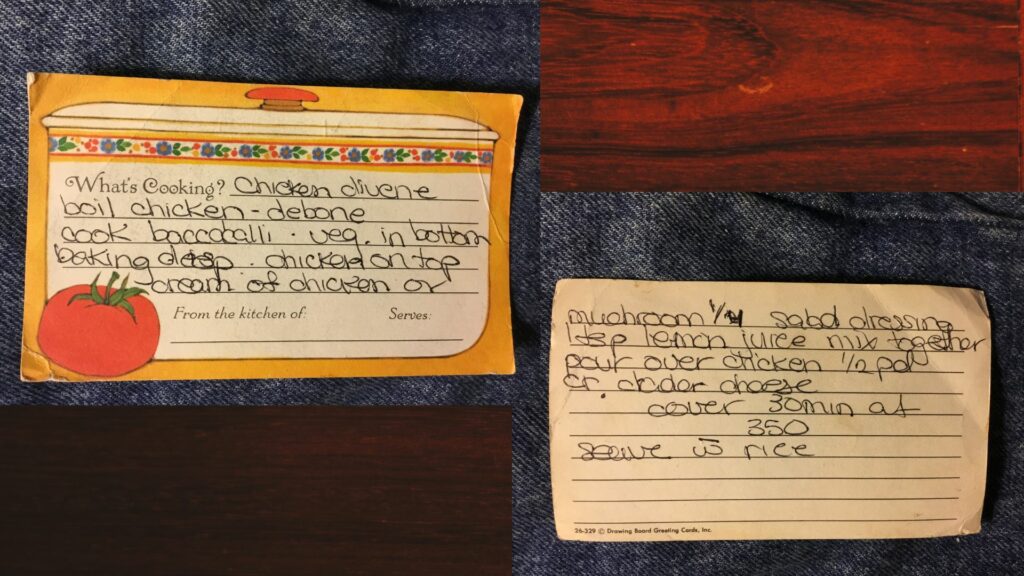 What's Cooking? Chicken divene
boil chicken - debone
cook boccocalli - veg. in bottom
baking - chicken on top
cream of chicken or
From the kitchen of: Serves:
mushroom 1/4 salad dressing
1 tsp lemon juice mix together
pour over chicken 1/2 pd
cr. chedar cheese
cover 30min at
350
searve w̄ rice
26-329 © Drawing Board Greeting Cards, Inc.